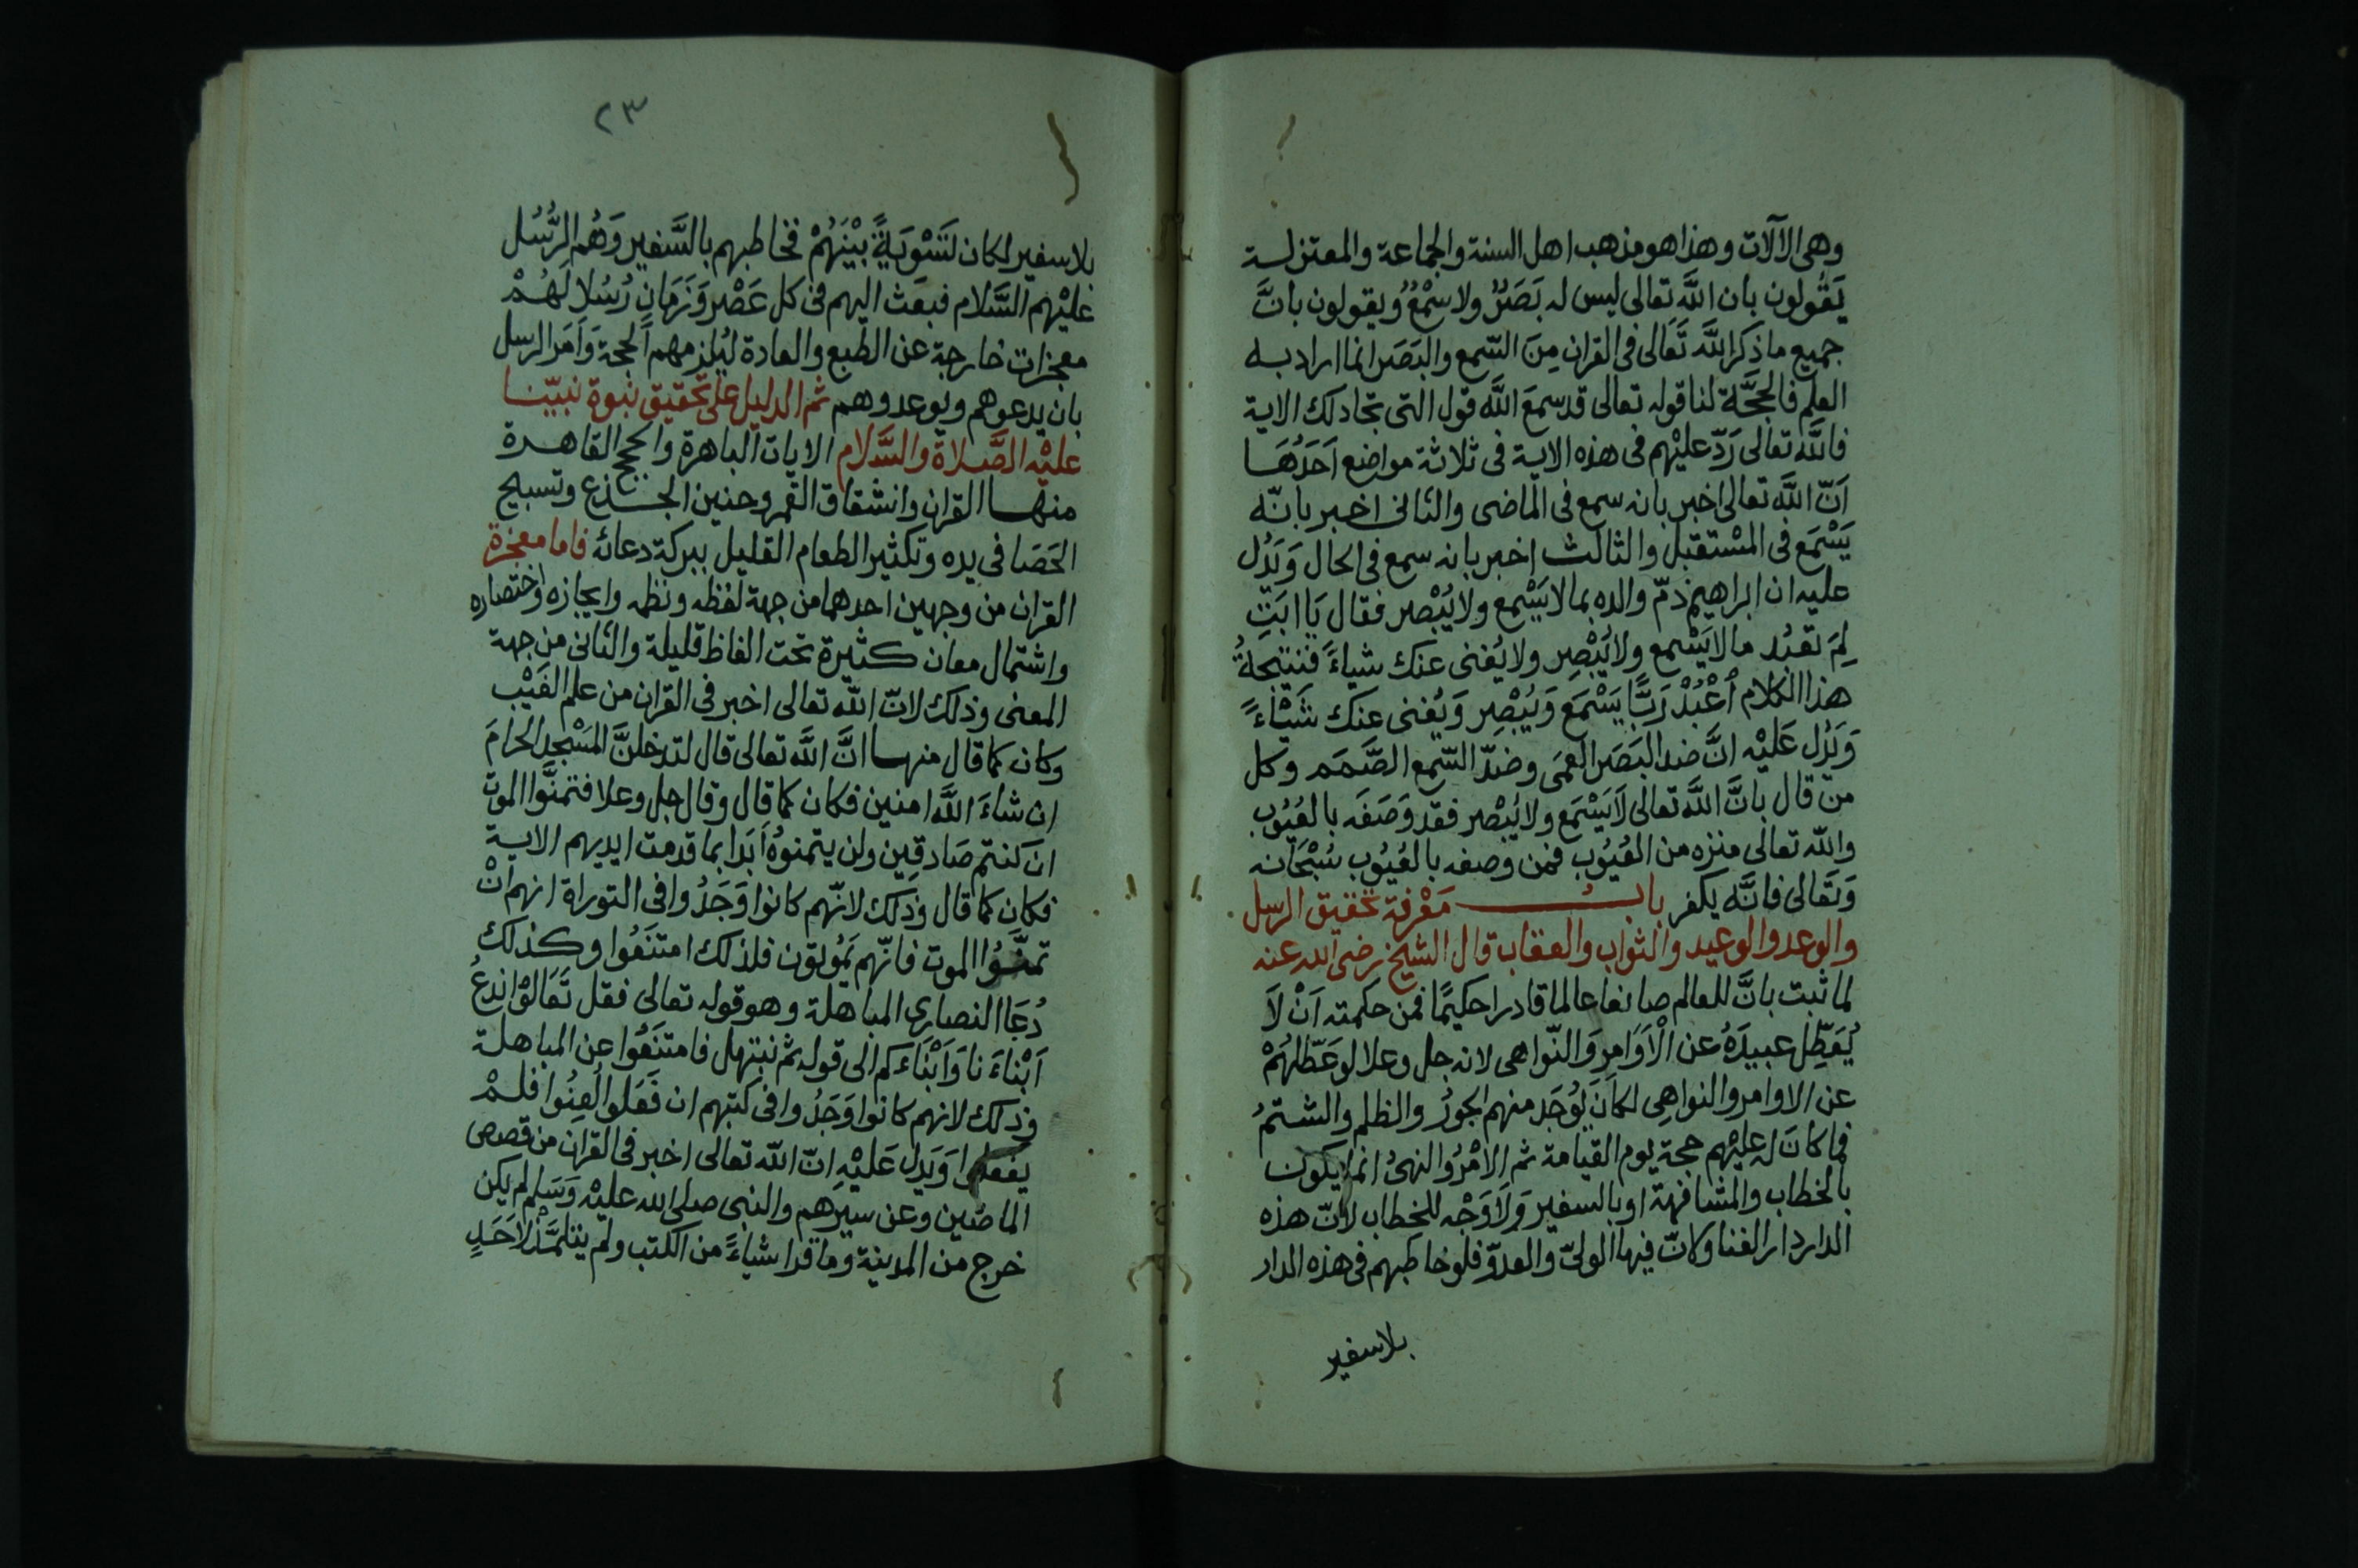 وهى الآلات وهذا هو مذهب اهل السنة والجماعة والمعتزلة
يَقُولون بان اللَّه تعالى ليس له بَصَرٌ ولا سمْعٌ ويقولون بانَّ
جميع ما ذكر اللَّه تَعالى فى القران مِنَ السّمع والبَصَر انما اراد به
العلم فالحجَّة لنا قوله تعالى قد سمعَ اللَّه قول التى تجادلك الاية
فاللَّه تعالى رَدّ عليْهم فى هذه الاية فى ثلاثة مواضع اَحَدُهَا
اَنّ اللَّه تعالى اخبر بانه سمع فى الماضى والثانى اخبر بانّه
يَسْمَع فى المسْتقبل والثالث اخبر بانه سمع فى الحال وَيَدُل
عليه ان ابراهيم ذمّ والده بما لا يَسْمع ولا يُبْصر فقال يَا ابَتِ
لِمَ تعبُد ما لا يَسْمع ولا يُبْصِر ولا يُغنى عنك شياءً فنتيجةُ
هذا الكلام اُعْبُدْ رَبًّا يَسْمَع وَيُبْصِر وَيُغنى عنك شَيْاءً
وَيَدُل عَليْه انَّ ضد البَصَر العمَى وضِدّ السّمع الصَّمَم وكل
من قال بانَّ اللَّه تعالى لَا يَسْمَع ولا يُبْصر فقد وَصَفَه بالعُيُوب
واللّه تعالى منزه من العُيُوب فمن وصفه بالعُيُوب سُبْحَانه
وَتَعَالى فانَّه يكفر بابُ مَعْرفة تحقيق الرسل
والوعد والوعيد والثواب والعقاب قال الشيخ رضى الله عنه
لما ثبت بانَّ للعالم صانعا عالما قادرا حكيمًا فمن حكمته اَنْ لَا
يُعَطِّل عبيدَهُ عن الْاَوَامِر وَالنّواهى لانه جل وعلا لو عَطّلهُمْ
عن الاوامر والنواهِى لكانَ يُوْجَد منهم الجورُ والظلم والشتمُ
فما كانَ له عليْهم حجة يوم القيامة ثم الامْرُ والنهىُ انما يكون
بالخطاب والمشافهة او بالسفير وَلَا وَجْه للخطاب لانّ هذه
الدار دار الفنا وكانّ فيها الولىّ والعدوّ فلو خاطبهم فى هذه الدار
بلا سفير
٢٣
بلا سفير لكان تَسْوِيَةً بيْنَهُمْ فخاطبهم بالسَّفير وَهُم الرُّسُل
عليْهم السَّلام فبعَث اليهم فى كل عَصْر وَزَمَانٍ رُسُلا لَهُمْ
معجزات خارجة عن الطبع والعادة ليُلزمهم الحجة وَاَمَر الرسل
بان يدعوهم ويوعدوهم ثم الدليل على تحقيق نبوة نبيّنا
عليْه الصَّلاة والسَّلام الايات الباهرة والحجج القاهرة
منها القران وانشقاق القمر وحنين الجذع وتسبيح
الحَصَا فى يده وتكثير الطعام القليل ببركة دعائه فاما معجزة
القران من وجهين احدهما من جهة لفظه ونظمه وايجازه واختصاره
واشتمال معان كثيرة تحت الفاظ قليلة والثانى من جهة
المعنى وذلك لانّ اللّه تعالى اخبر فى القران من علم الغَيْب
وكان كما قال منها انَّ اللَّه تعالى قال لتدخلنَّ المسْجد الحرامَ
ان شاءَ اللَّه امنين فكان كما قال وقال جل وعلا فتمنَّوا الموت
ان كنتم صَادقِين ولن يتمنوهُ اَبَدا بما قدمت ايديهم الاية
فكان كما قال وذلك لانّهم كانوا وَجَدُوا فى التوراة انهم انْ
تمنَّوُا الموت فانّهم يَمُوتون فلذلك امتنَعُوا وكذلك
دُعَا النصارى المباهلة وهو قوله تعالى فقل تَعَالَوْا ندعُ
اَبْناءَ نا وَاَبْنَاءَ كم الى قوله ثم نبتهل فامتنَعُوا عن المباهلة
وذلك لانهم كانوا وَجَدُوا فى كتبهم ان فَعَلوا لُعِنُوا فلمْ
يفعلوا وَيَدل عَليْهِ انّ اللّه تعالى اخبر فى القران من قصص
الماضين وعن سيرهم والنبى صلى الله عليْه وَسَلم لم يكن
خرج من المدينة وما قرا شياءً من الكتب ولم يتلمَّذْ لاَحَدٍ